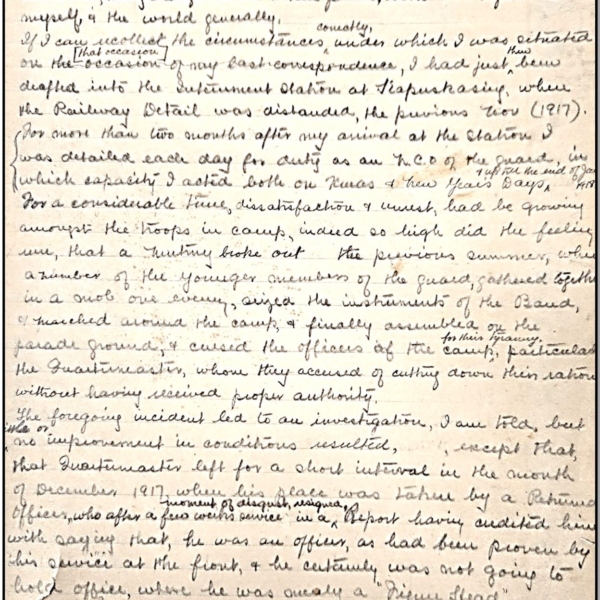 myself, & the world generally.
If I can recollect the circumstances correctly, under which I was situated
on the [that occasion] occasion of my last correspondence, I had just then been
drafted into the Internment Station at Kapuskasing, where
the Railway Detail was disbanded, the previous Nov (1917).
For more than two months after my arrival at the Station I
was detailed each day for duty as an N.C.O of the guard, in
which capacity I acted both on Xmas & New Years Days, & up till the end of Jan 1918
For a considerable time, dissatisfaction & unrest, had be growing
amongst the troops in camp, indeed so high did the feeling
run, that a mutiny broke out the previous summer, when
a number of the younger members of the guard, gathered together
in a mob one evening, seized the instruments of the Band,
& marched around the camp, & finally assembled on the
parade ground, & cursed the officers of the camp, for their tyranny, particular
the Quartermaster, whom they accused of cutting down their ration
without having received proper authority.
The foregoing incident led to an investigation, I am told, but
no improvement in conditions resulted, except that,
that Quartermaster left for a short interval in the month
of December 1917, when his place was taken by a Returned
Officer, who after a few weeks service in a moment of disgust, resigned, Report having credited him
with saying that, he was an officer, as had been proven by
his service at the front, & he certainly was not going to
hold office, where he was merely a "Figure Head"